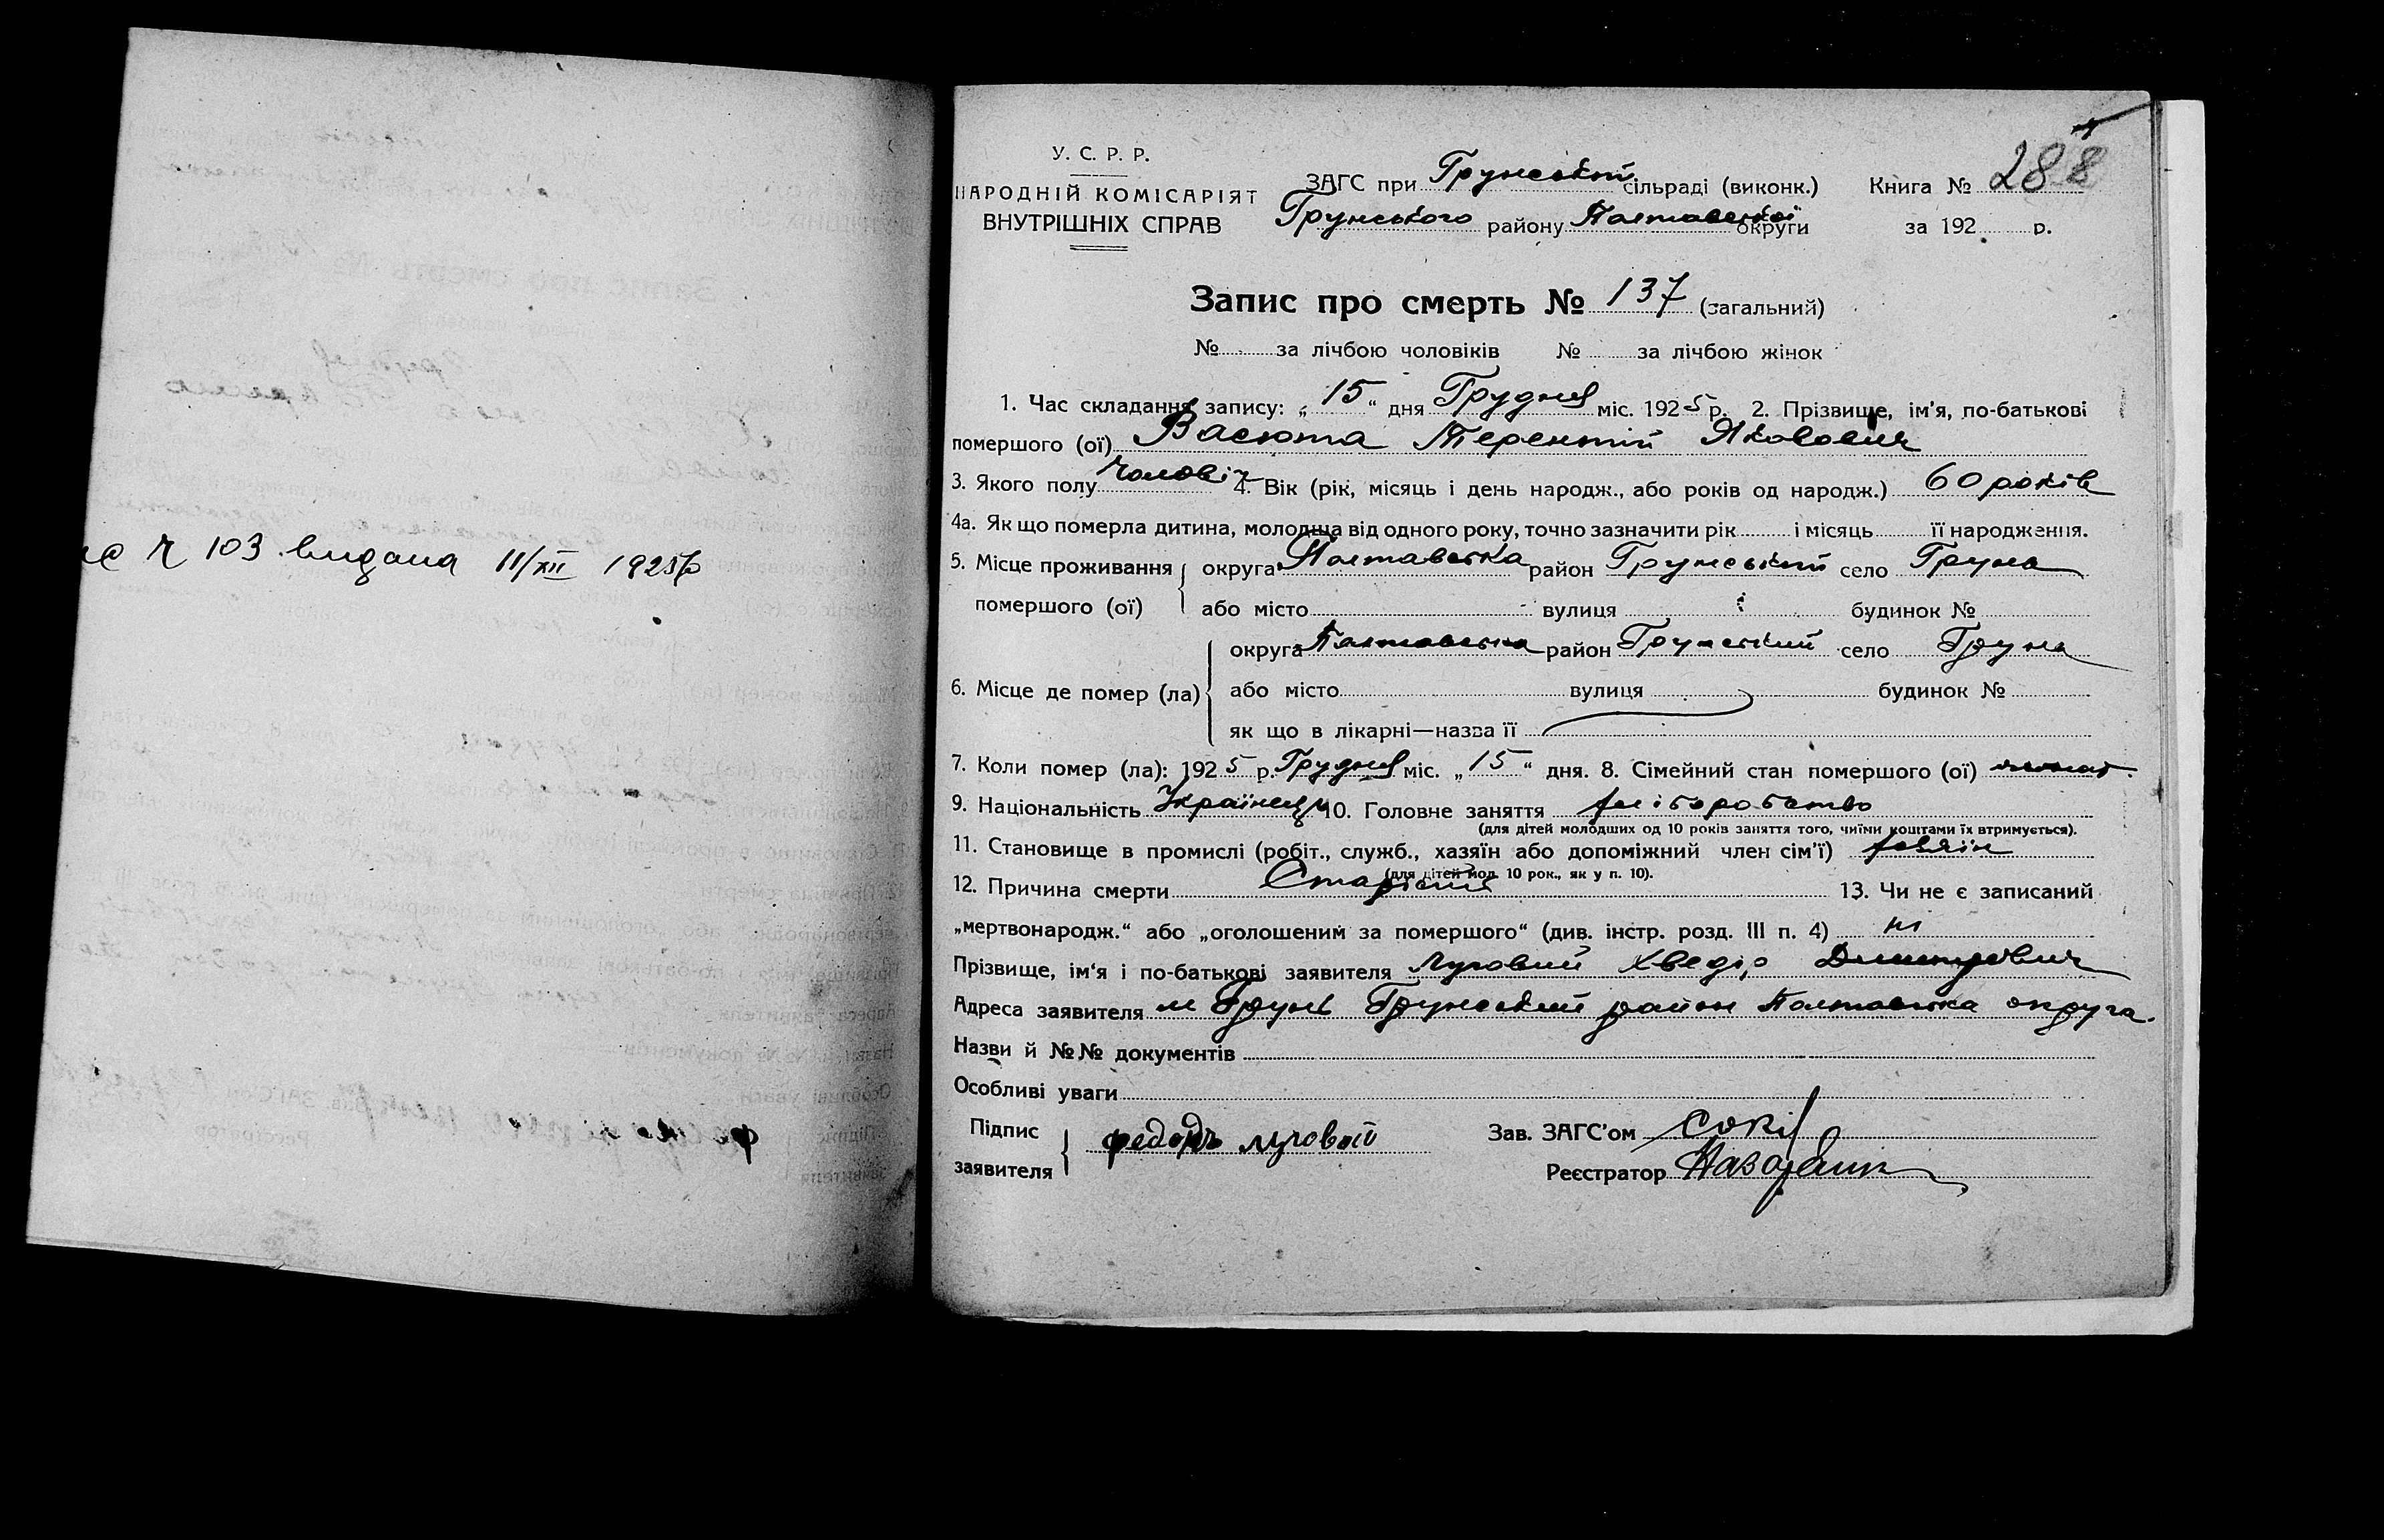 ч 103 видана 11/XII 1925р
У. С. Р. Р.
НАРОДНІЙ КОМІСАРІЯТ
ВНУТРІШНІХ СПРАВ
ЗАГС при Грунській сільраді (виконк.)
Грунського району Полтавської округи
Книга № 288
за 192 р.
Запис про смерть № 137 (загальний)
№ за лічбою чоловіків № за лічбою жінок
1. Час складання запису: „15“ дня Грудня міс. 1925 р. 2. Прізвище, ім'я, по-батькові
помершого (ої) Васюта Терентій Якович
3. Якого полу чоловіч 4. Вік (рік, місяць і день народж., або років од народж.) 60 років
4а. Як що померла дитина, молодша від одного року, точно зазначити рік і місяць її народження.
5. Місце проживання помершого (ої) округа Полтавська район Грунський село Грунь
або місто вулиця будинок №
6. Місце де помер (ла) округа Полтавська район Грунський село Грунь
або місто вулиця будинок №
як що в лікарні—назва її
7. Коли помер (ла): 1925 р. Грудня міс. „15“ дня. 8. Сімейний стан помершого (ої)
9. Національність Українець 10. Головне заняття хліборобство
(для дітей молодших од 10 років заняття того, чиїми коштами їх втримується).
11. Становище в промислі (робіт., служб., хазяїн або допоміжний член сім'ї) хазяїн
(для дітей мол. 10 рок., як у п. 10).
12. Причина смерти Старість 13. Чи не є записаний
„мертвонародж.“ або „оголошеним за помершого“ (див. інстр. розд. III п. 4) ні
Прізвище, ім'я і по-батькові заявителя Луговий Хведір Дмитрович
Адреса заявителя м Грунь Грунський район Полтавська округа.
Назви й №№ документів
Особливі уваги
Підпис заявителя федоръ луговой
Зав. ЗАГС'ом
Реєстратор